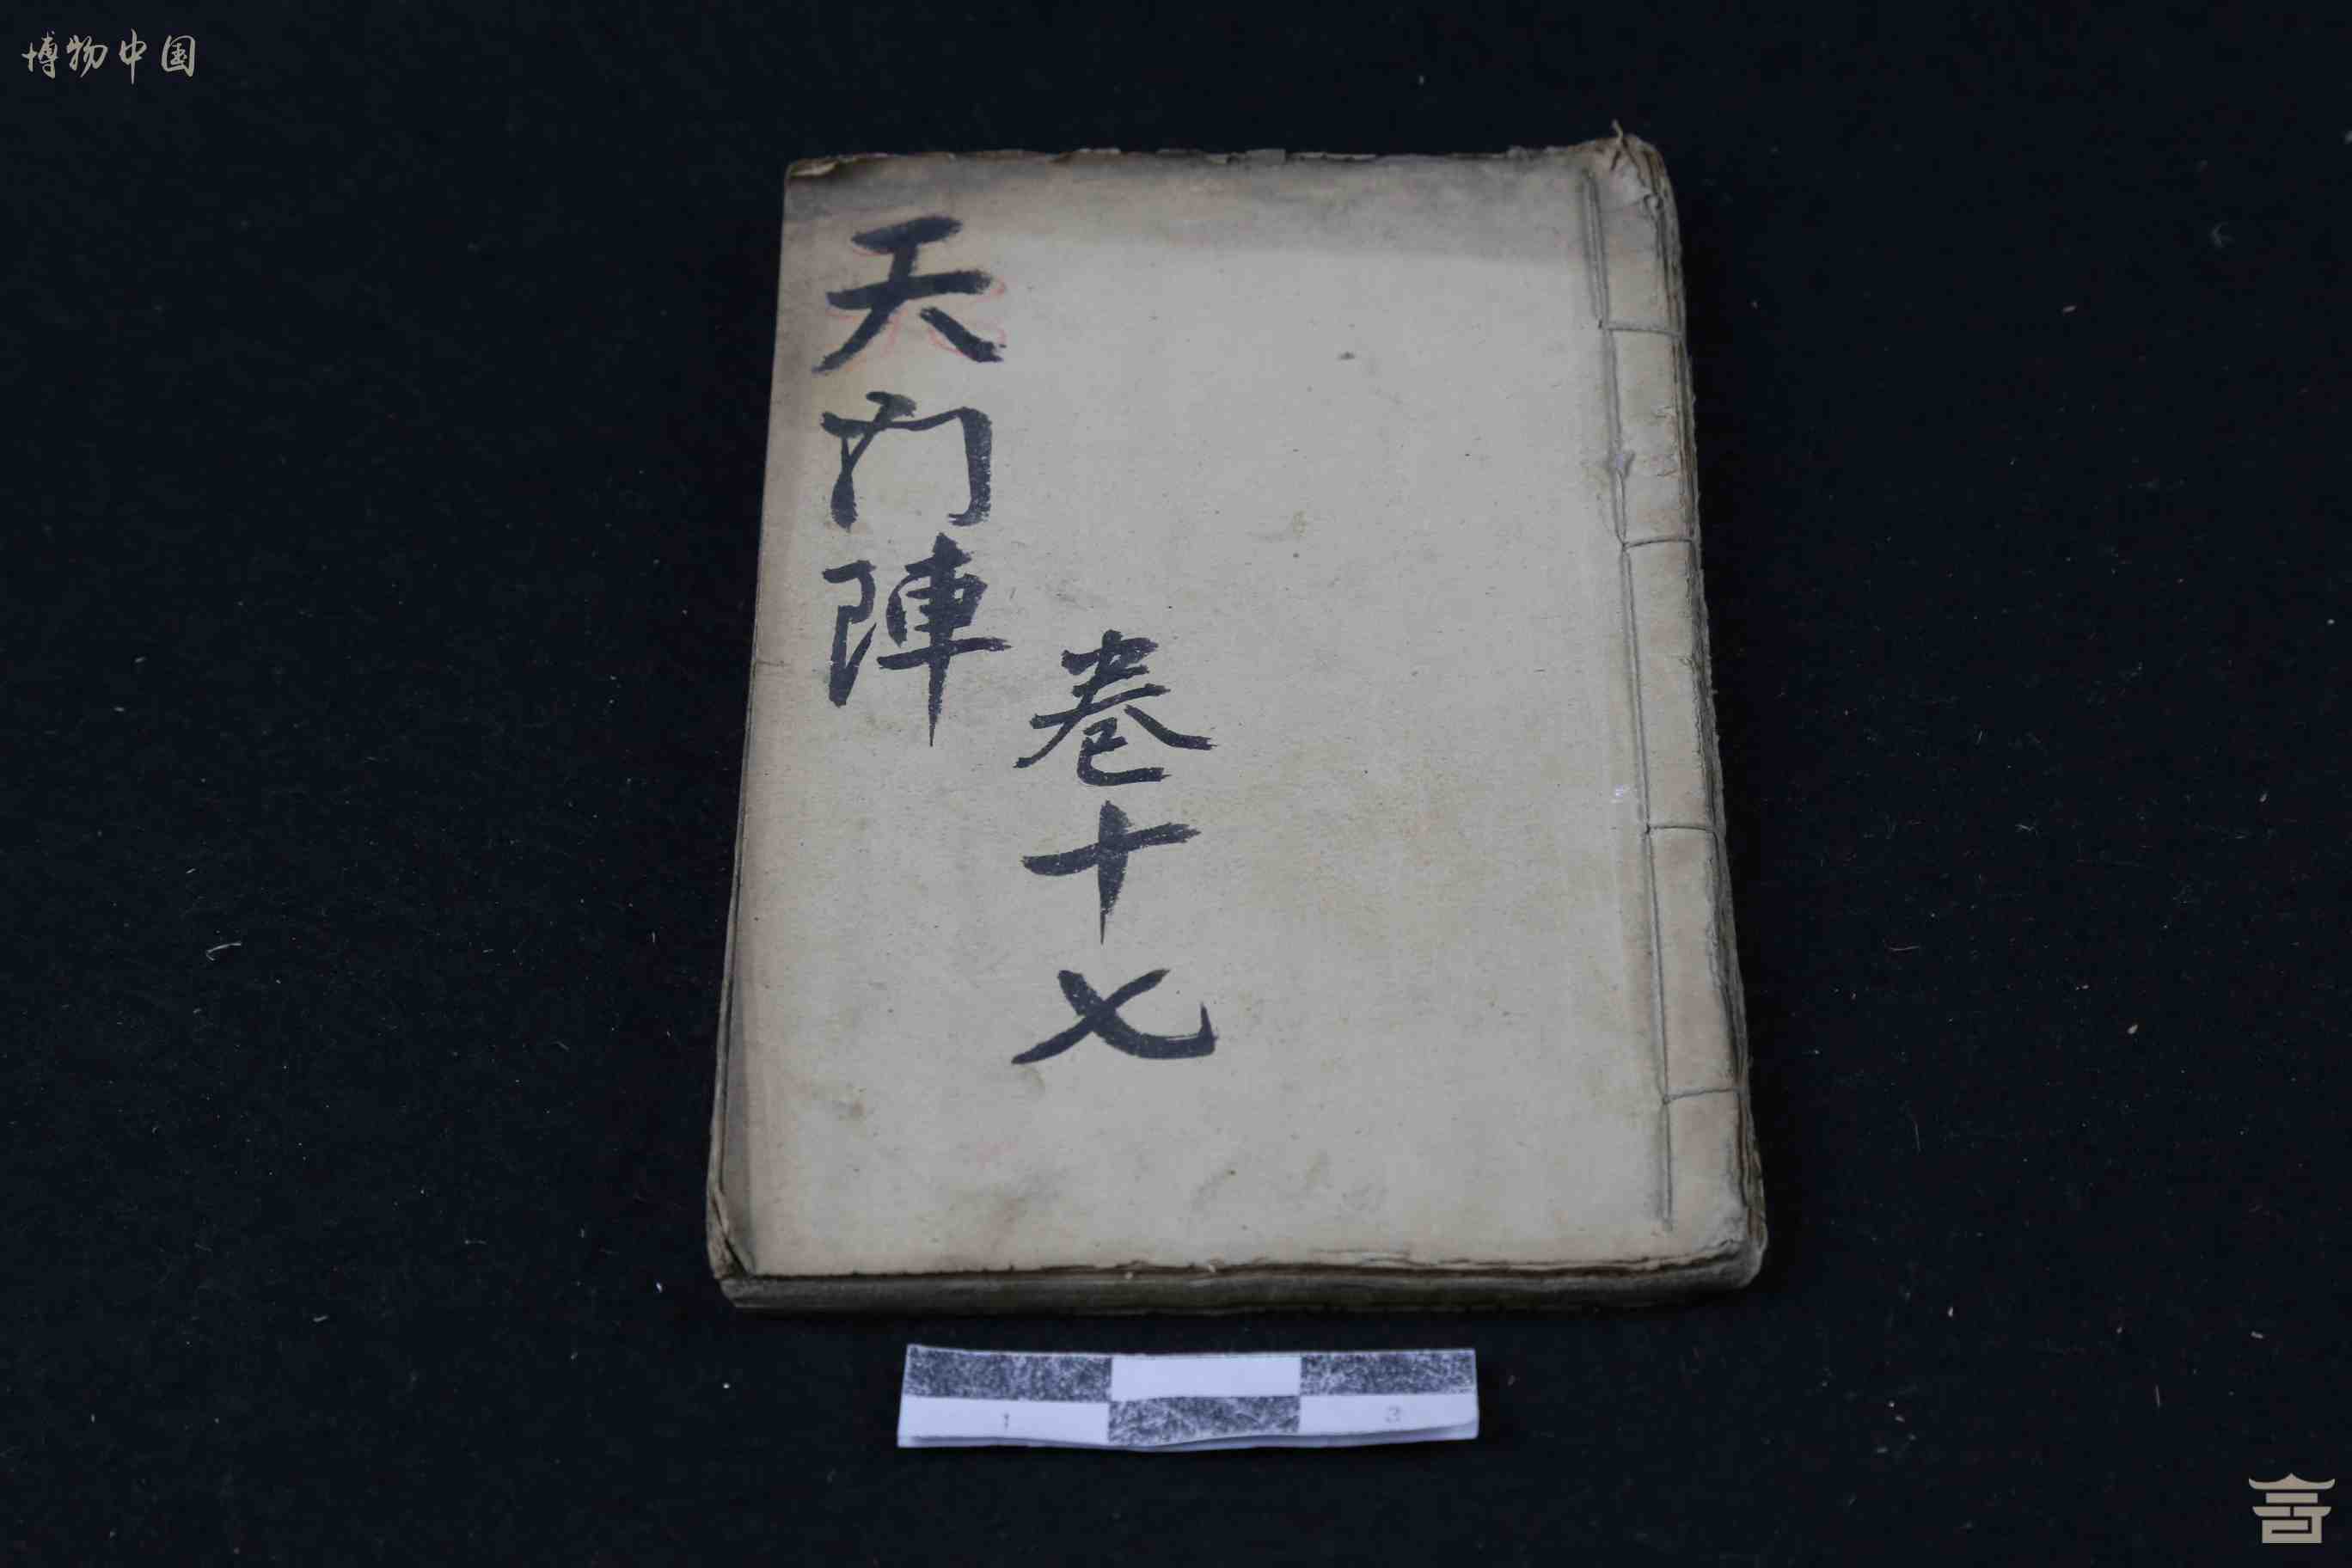 博物中国
天门陣
卷十七
1
3